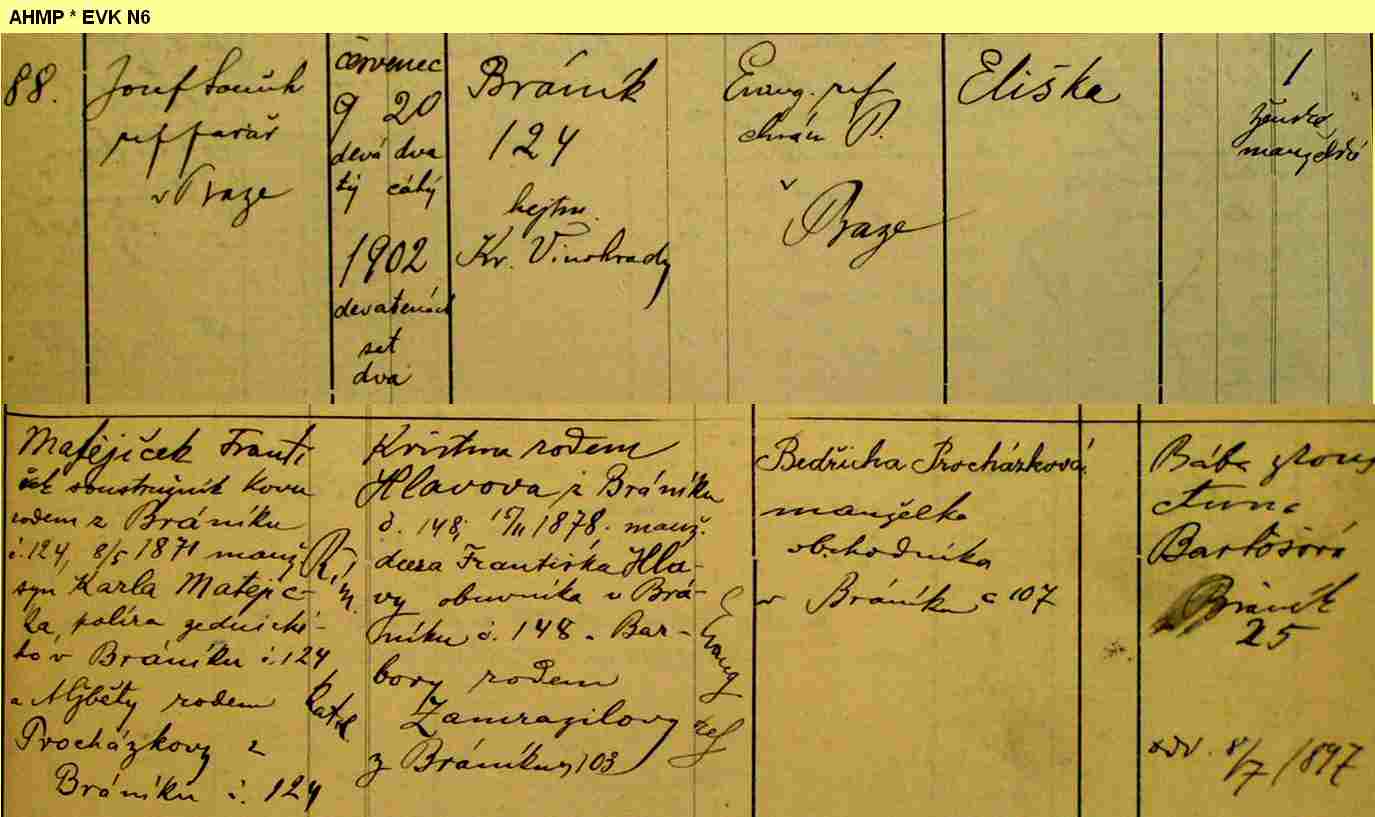 AHMP * EVK N6
88.
Josef Souček
ref farář
v Praze
červenec
9 20
devá dva
tý cátý
1902
devatenáct
set
dva
Bráník
124
hejtm.
Kr. Vinohrady
Evang. ref
chrám P.
v
Praze
Eliška
1
žensko
manželské
Matějíček Franti
šek soustružník kovu
rodem z Bráníku
č. 124, 8/5 1871 manž
syn Karla Matějíč-
ka, políra zednické-
ho v Bráníku č. 124
a Alžběty rodem
Procházkovy z
Bráníku č. 124
Řím.
katol
Kristina rodem
Hlavova z Bráníku
č. 148, 1878. manž.
dcera Františka Hla-
vy obuvníka v Brá-
níku č. 148 a Bar-
bory rodem
Zamrazilovy
z Bráníku 103
Evang
ref
Bedřicha Procházková
manželka
obchodníka
v Bráníku č 107
Bába zkouš
Anna
Bartošová
Bráník
25
odd. 8/7 1897